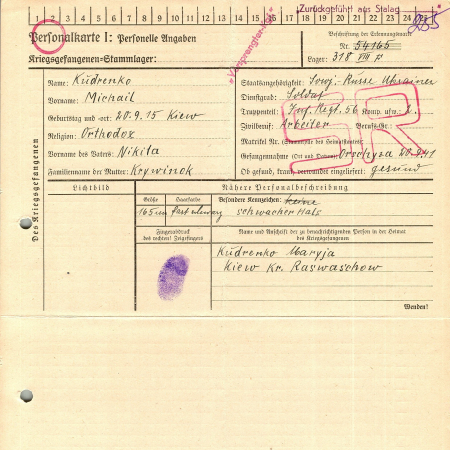 Zurückgeführt aus Stalag
1 2 3 4 5 6 7 8 9 10 11 12 13 14 15 16 17 18 19 20 21 22 23 24 25
Personalkarte I: Personelle Angaben
Beschriftung der Erkennungsmarke
Nr. 54165
Kriegsgefangenen=Stammlager:
Lager: 318 VIII F
Des Kriegsgefangenen
Name: Kudrenko
Vorname: Michail
Geburtstag und -ort: 20.9.15 Kiew
Religion: Orthodox
Vorname des Vaters: Nikita
Familienname der Mutter: Krywinok
Staatsangehörigkeit: Sowj. Russe Ukrainer
Dienstgrad: Soldat
Truppenteil: Inf. Regt. 56 Komp. usw.:
Zivilberuf: Arbeiter Berufs-Gr.:
Matrikel Nr.
Gefangennahme (Ort und Datum): Orschyza 20.9.41
Ob gesund, krank, verwundet eingeliefert: gesund
SR
Lichtbild
Nähere Personalbeschreibung
Größe Haarfarbe Besondere Kennzeichen: keine
165 cm schwacher Hals
Fingerabdruck
des rechten! Zeigefingers
Name und Anschrift der zu benachrichtigenden Person in der Heimat
des Kriegsgefangenen
Kudrenko Maryja
Kiew Kr. Raswaschow
Wenden!